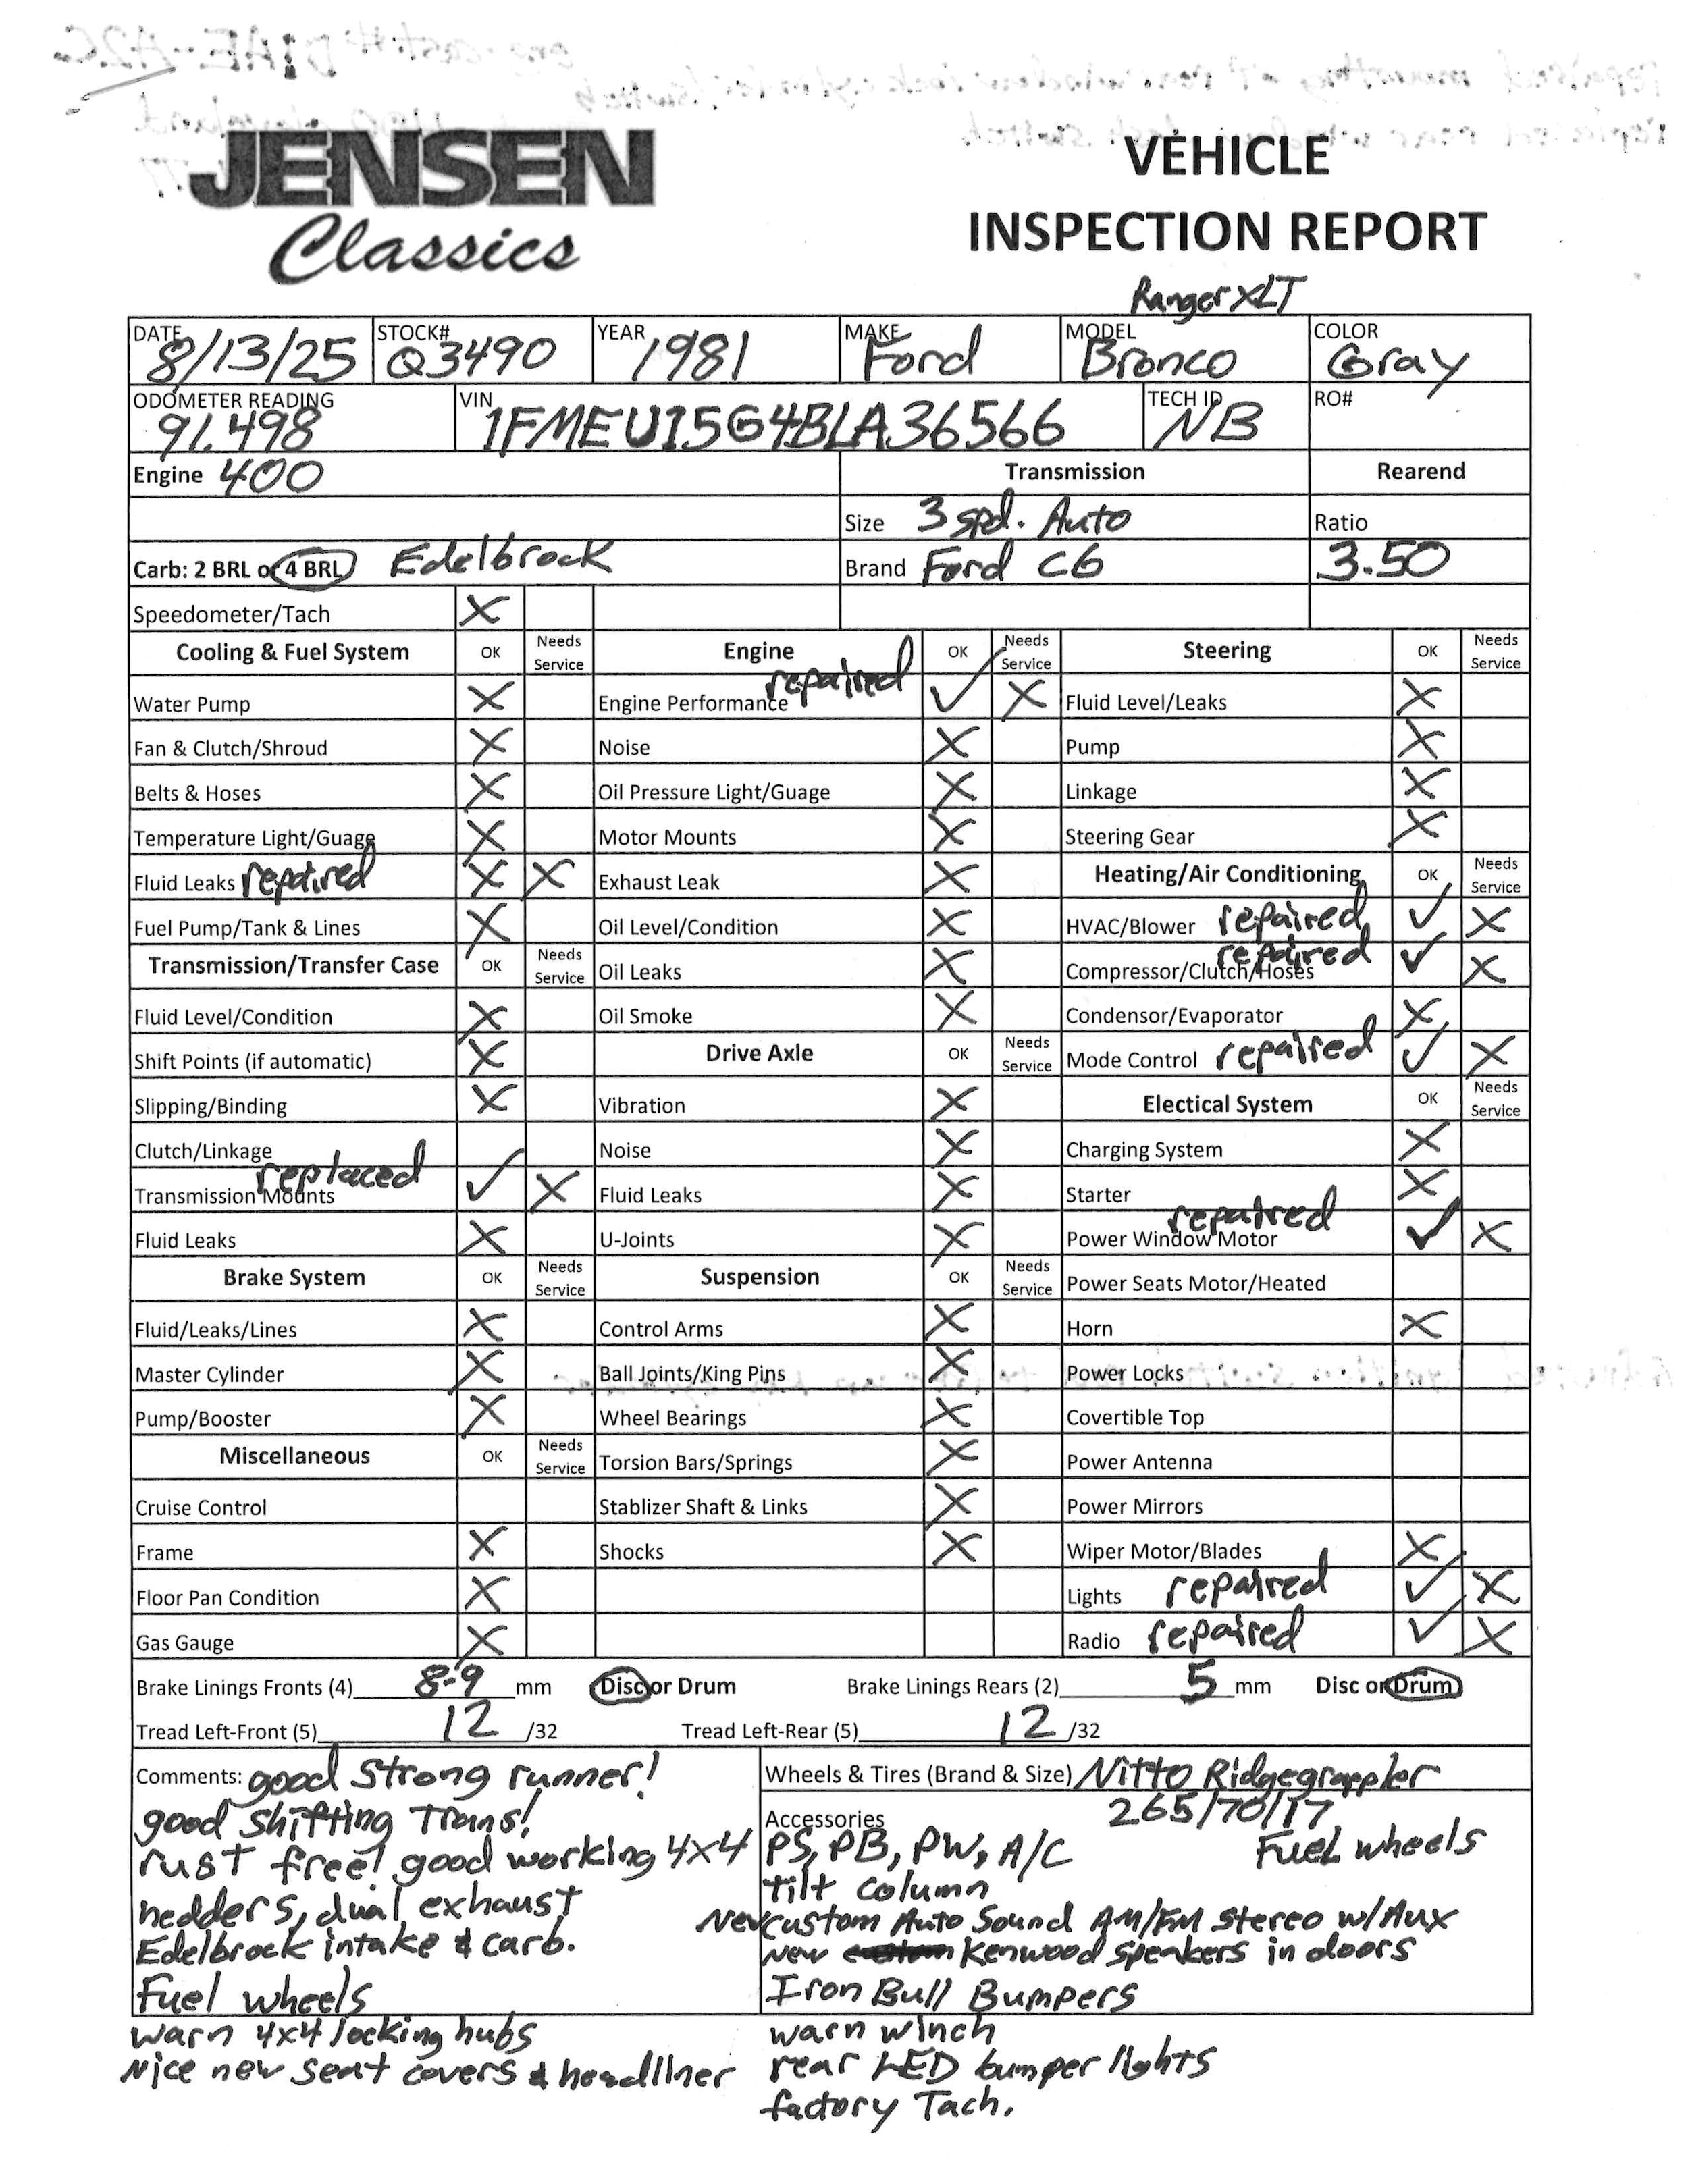 JENSEN
Classics
VEHICLE
INSPECTION REPORT
Ranger XLT
DATE 8/13/25 STOCK# Q3490 YEAR 1981 MAKE Ford MODEL Bronco COLOR Gray
ODOMETER READING 91.498 VIN 1FMEU15G4BLA36566 TECH ID NB RO#
Engine 400 Transmission Rearend
Size 3 spd. Auto Ratio
Carb: 2 BRL or 4 BRL Edelbrock Brand Ford C6 3.50
Speedometer/Tach X
Cooling & Fuel System OK Needs Service Engine OK Needs Service Steering OK Needs Service
Water Pump X Engine Performance repaired ✓ X Fluid Level/Leaks X
Fan & Clutch/Shroud X Noise X Pump X
Belts & Hoses X Oil Pressure Light/Guage X Linkage X
Temperature Light/Guage X Motor Mounts X Steering Gear X
Fluid Leaks repaired X X Exhaust Leak X Heating/Air Conditioning OK Needs Service
Fuel Pump/Tank & Lines X Oil Level/Condition X HVAC/Blower repaired ✓ X
Transmission/Transfer Case OK Needs Service Oil Leaks X Compressor/Clutch/Hoses repaired ✓ X
Fluid Level/Condition X Oil Smoke X Condensor/Evaporator X
Shift Points (if automatic) X Drive Axle OK Needs Service Mode Control repaired ✓ X
Slipping/Binding X Vibration X Electical System OK Needs Service
Clutch/Linkage Noise X Charging System X
Transmission Mounts replaced ✓ X Fluid Leaks X Starter X
Fluid Leaks X U-Joints X Power Window Motor repaired ✓ X
Brake System OK Needs Service Suspension OK Needs Service Power Seats Motor/Heated
Fluid/Leaks/Lines X Control Arms X Horn X
Master Cylinder X Ball Joints/King Pins X Power Locks
Pump/Booster X Wheel Bearings X Covertible Top
Miscellaneous OK Needs Service Torsion Bars/Springs X Power Antenna
Cruise Control Stablizer Shaft & Links X Power Mirrors
Frame X Shocks X Wiper Motor/Blades X
Floor Pan Condition X Lights repaired ✓ X
Gas Gauge X Radio repaired ✓ X
Brake Linings Fronts (4) 8-9 mm Disc or Drum Brake Linings Rears (2) 5 mm Disc or Drum
Tread Left-Front (5) 12 /32 Tread Left-Rear (5) 12 /32
Comments: good strong runner!
good shifting Trans!
rust free! good working 4x4
hedders, dual exhaust
Edelbrock intake & carb.
Fuel wheels
warn 4x4 locking hubs
Nice new seat covers & headliner
Wheels & Tires (Brand & Size) Nitto Ridgegrappler
265/70/17
Accessories
PS, PB, PW, A/C Fuel wheels
tilt column
New custom Auto Sound AM/FM stereo w/Aux
new Kenwood speakers in doors
Iron Bull Bumpers
warn winch
rear LED bumper lights
factory Tach.